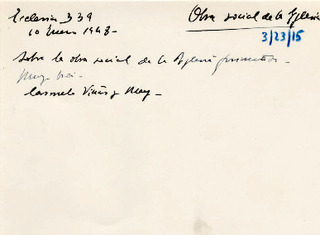 Ecclesia 339
10 Enero 1948-
Obra social de la Iglesia
3/23/15
Sobre la obra social de la Iglesia
Carmelo Viñas y Mey -